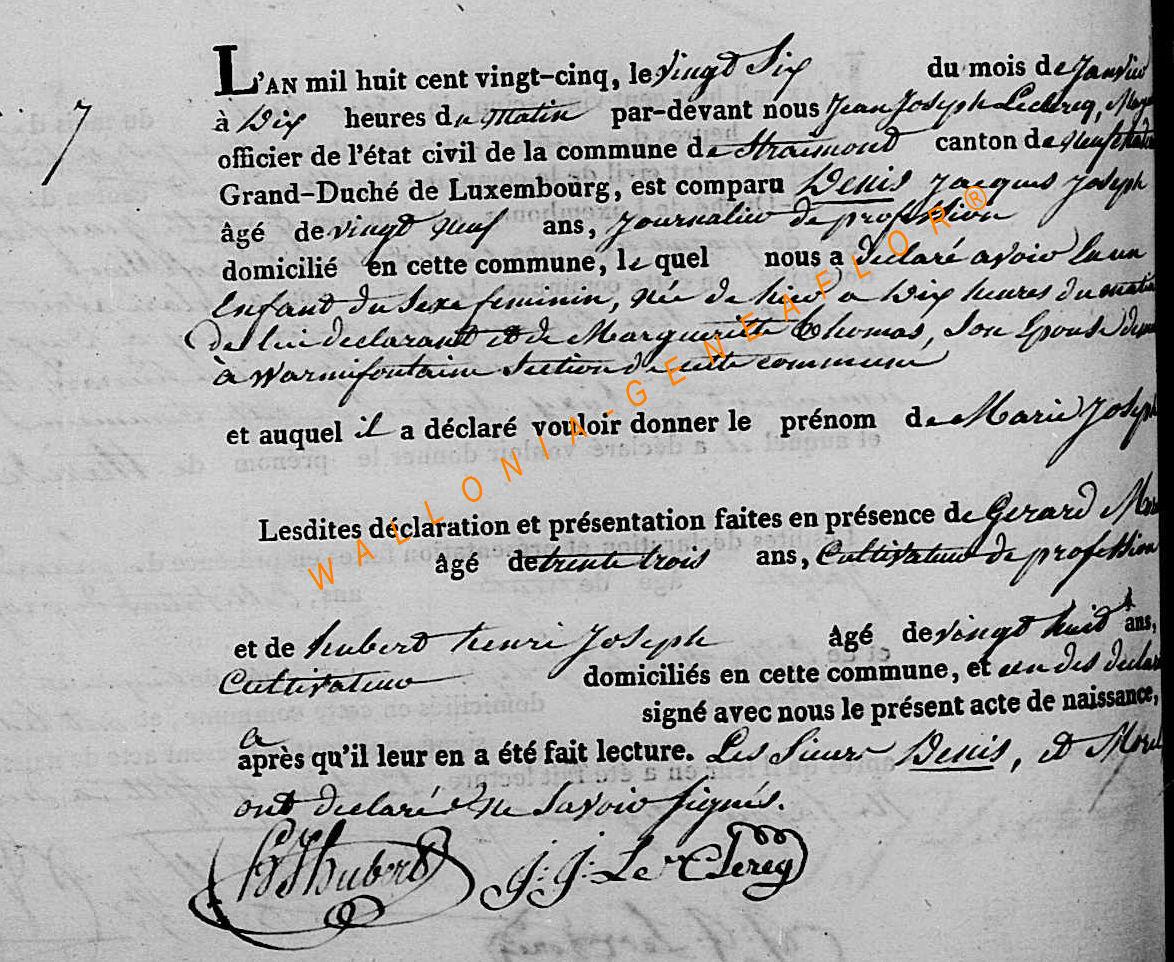 7
L'AN mil huit cent vingt-cinq, le vingt Six du mois de Janvier
à Dix heures du Matin par-devant nous Jean Joseph Leclercq,
officier de l'état civil de la commune de Straimont canton de
Grand-Duché de Luxembourg, est comparu Denis Jacques Joseph
âgé de vingt neuf ans, Journalier de profession
domicilié en cette commune, le quel nous a declaré avoir eu un
Enfant du Sexe feminin, née de hier a Dix heures du matin
de lui declarant et de Marguerite Thomas, son Epouse
à Warmifontaine Section de cette commune
et auquel il a déclaré vouloir donner le prénom de Marie Joseph
Lesdites déclaration et présentation faites en présence de Gerard
âgé de trente trois ans, Cultivateur de profession
et de hubert henri Joseph âgé de vingt huit ans,
Cultivateur domiciliés en cette commune, et un des
a signé avec nous le présent acte de naissance,
après qu'il leur en a été fait lecture. Les Sieurs Denis, et
ont declaré ne Savoir Signés.
hubert J. J. Le Clercq
WALLONIA-GENEAFLOR®